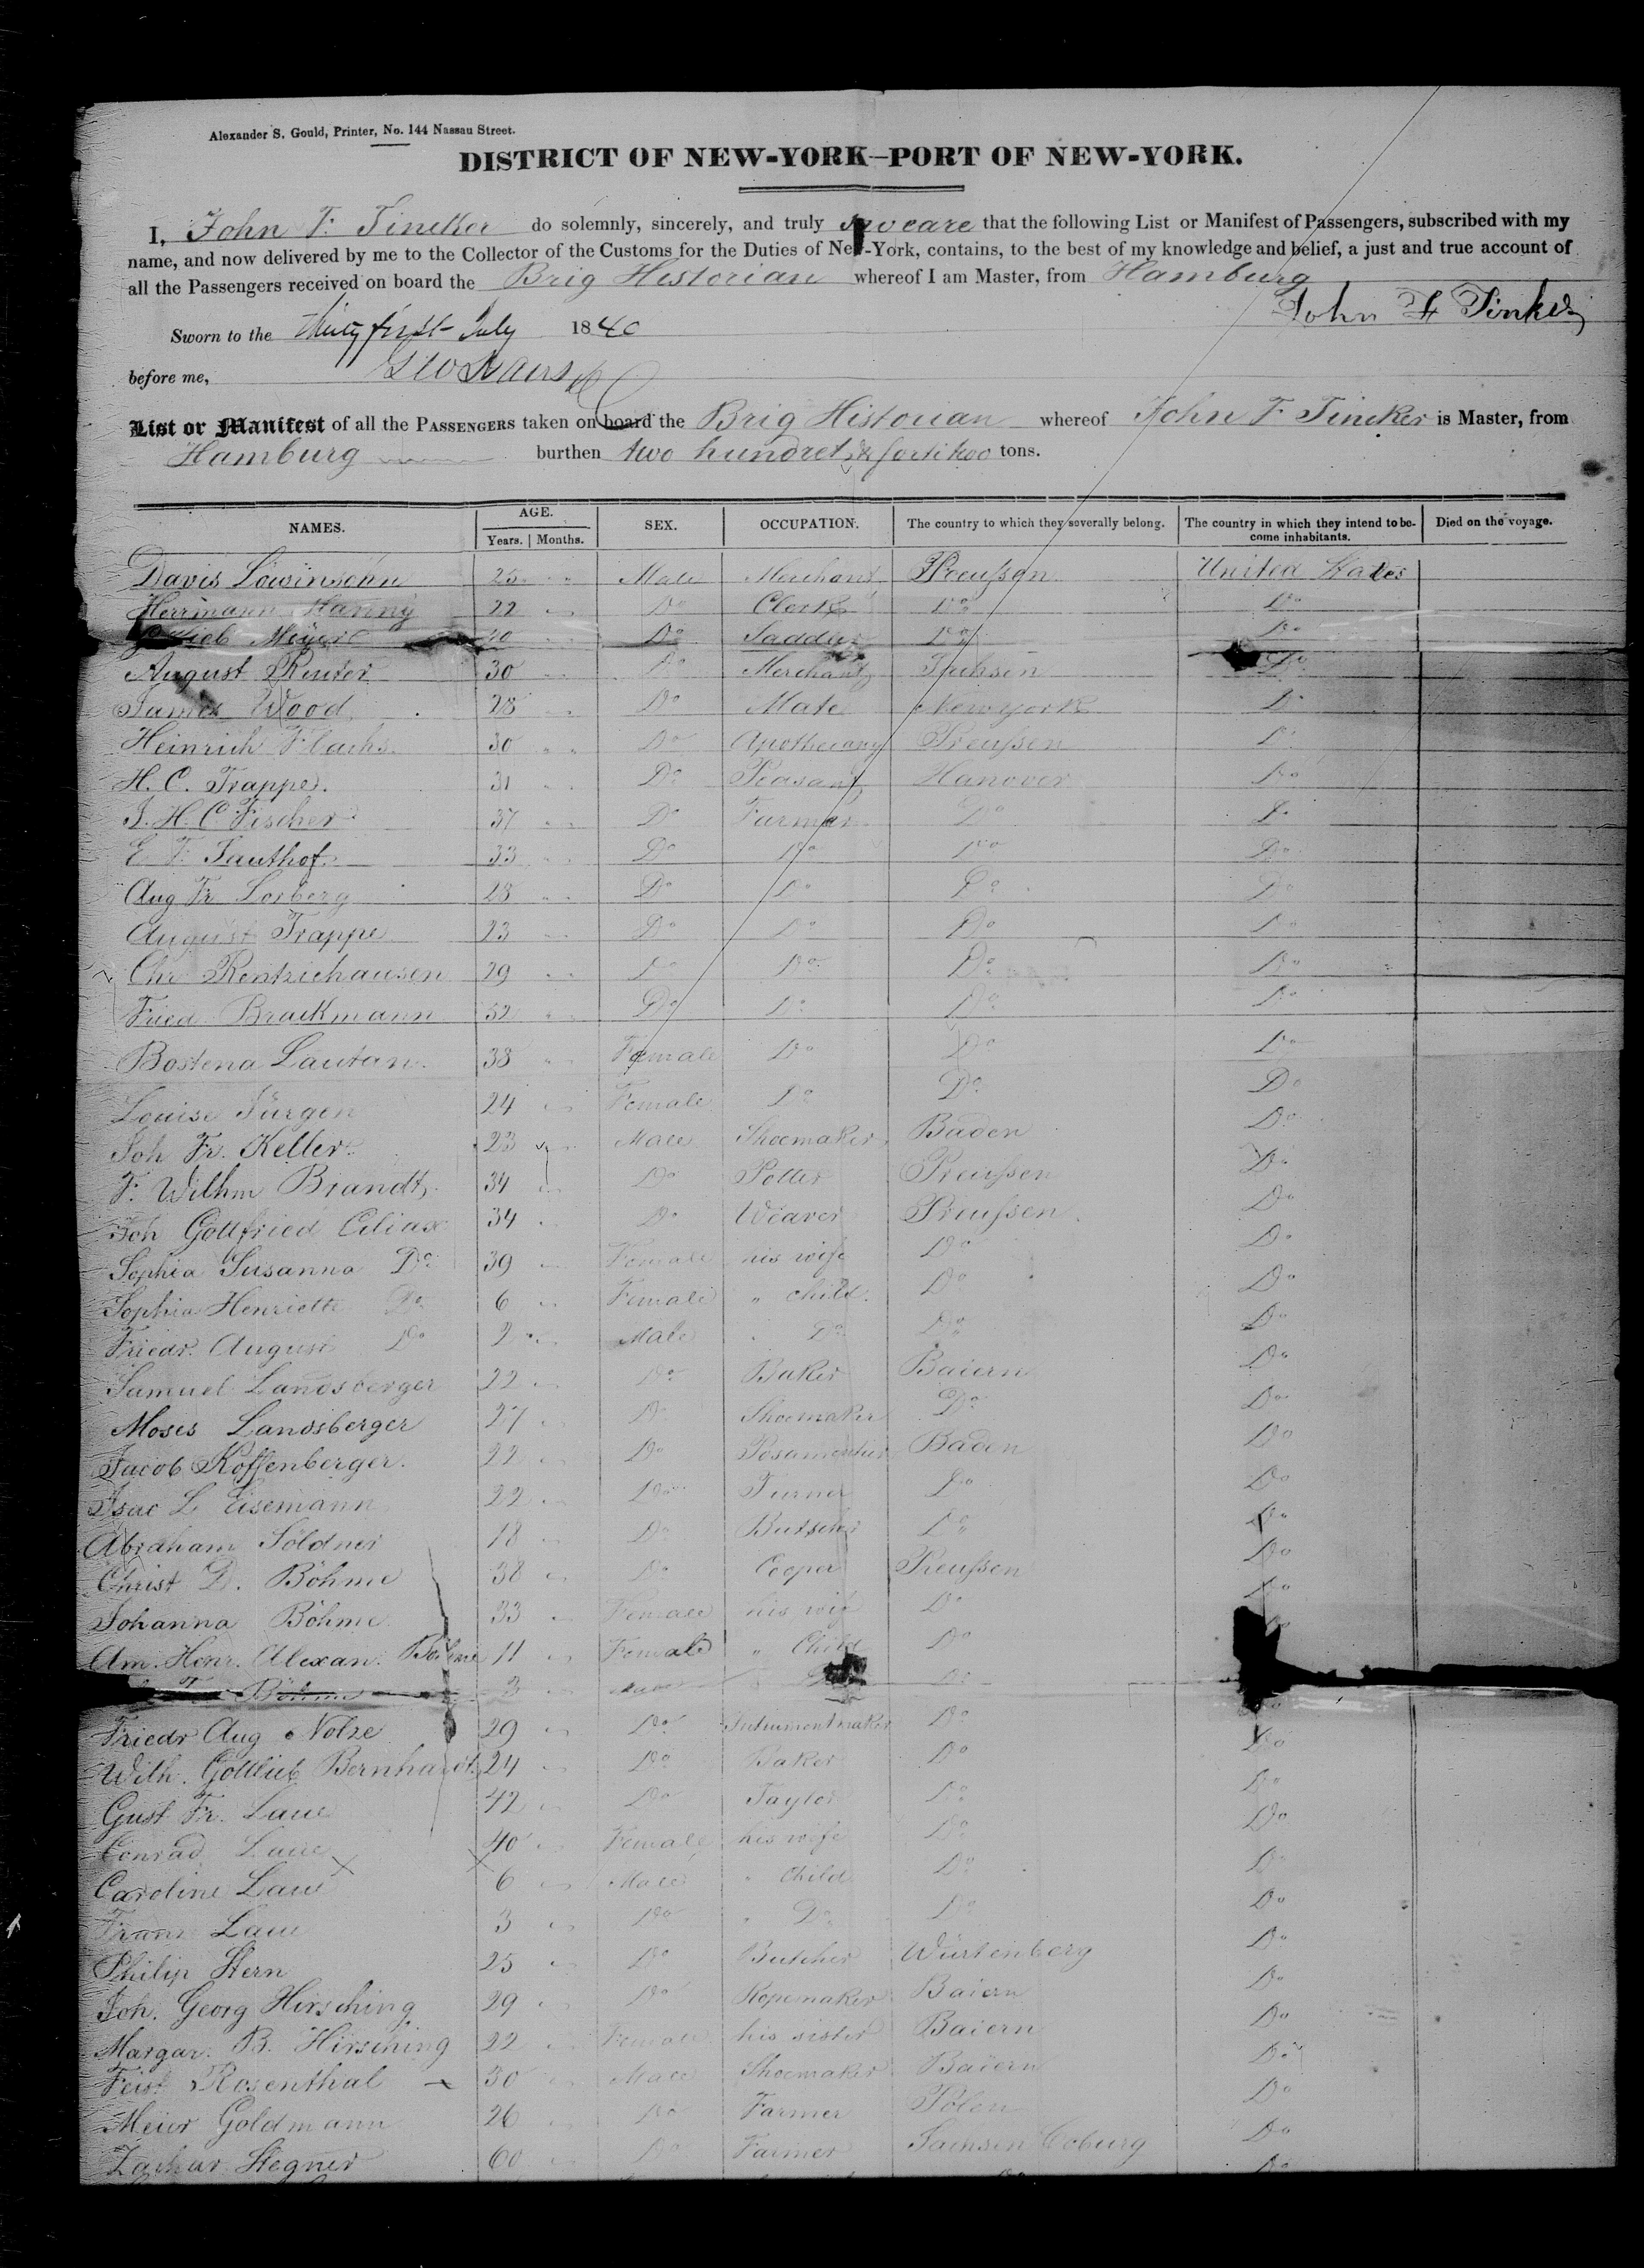 Alexander S. Gould, Printer, No. 144 Nassau Street.
DISTRICT OF NEW-YORK—PORT OF NEW-YORK.
I, John F. Tincker do solemnly, sincerely, and truly swear that the following List or Manifest of Passengers, subscribed with my
name, and now delivered by me to the Collector of the Customs for the Duties of New-York, contains, to the best of my knowledge and belief, a just and true account of
all the Passengers received on board the Brig Historian whereof I am Master, from Hamburg
John F Tinker
Sworn to the thirty first July 1840
before me,
List or Manifest of all the PASSENGERS taken on board the Brig Historian whereof John F. Tincker is Master, from
Hamburg burthen two hundret & fortitwo tons.
NAMES. AGE. Years. Months. SEX. OCCUPATION. The country to which they severally belong. The country in which they intend to become inhabitants. Died on the voyage.
Davis Löwinsohn 25 " " Male Merchant Preußen United States
Herrmann Manny 22 " Do Clerk Do Do
Meyer 40 " Do Saddler Do Do
August Reuter 30 " " Do Merchant Sachsen Do
James Wood 28 " Do Mate Newyork Do
Heinrich Flachs 30 " " Do Apothecary Preußen Do
H. C. Trappe 31 " " Do Peasant Hanover Do
J. H. C. Fischer 37 " " Do Farmer Do Do
E. F. Sauthof 33 " " Do Do Do Do
Aug Fr Losberg 28 " " Do Do Do Do
August Trappe 23 " " Do Do Do Do
Chr Rentziehausen 29 " " Do Do Do Do
Fried Brackmann 52 " " Do Do Do Do
Bostena Lautan 38 " " Female Do Do Do
Louise Jürgen 24 " Female Do Do Do
Joh Fr. Keller 23 " Male Shoemaker Baden Do
F. Wilhm Brandt 34 " Do Potter Preußen Do
Joh Gottfried Ciliax 34 " Do Weaver Preußen Do
Sophia Susanna Do 39 " Female his wife Do Do
Sophia Henriette Do 6 " Female " child Do Do
Friedr. August Do 2 " Male " Do Do Do
Samuel Landsberger 22 " Do Baker Baiern Do
Moses Landsberger 27 " Do Shoemaker Do Do
Jacob Koffenberger 22 " Do Posamentier Baden Do
Isac L Eisemann 22 " Do Turner Do Do
Abraham Söldner 18 " Do Butscher Do Do
Christ D. Böhme 38 " Do Cooper Preußen Do
Johanna Böhme 33 " Female his wife Do Do
Am. Henr. Alexan. Böhme 11 " Female " Child Do Do
Böhme 3 " Male Do Do
Friedr Aug Nolze 29 " Do Instrumentmaker Do Do
Wilh. Gottlieb Bernhardt 24 " Do Baker Do Do
Gust Fr. Laue 42 " Do Taylor Do Do
Conrad Laue 40 " Female his wife Do Do
Caroline Laue 6 " Male " Child Do Do
Franz Laue 3 " Do " Do Do Do
Philip Stern 25 " Do Butcher Würtenberg Do
Joh. Georg Hirsching 29 " Do Ropemaker Baiern Do
Margar. B. Hirsching 22 " Female his sister Baiern Do
Feist Rosenthal 30 " Male Shoemaker Baiern Do
Meier Goldmann 26 " Do Farmer Polen Do
Zachar Stegner 60 " Do Farmer Sachsen Coburg Do